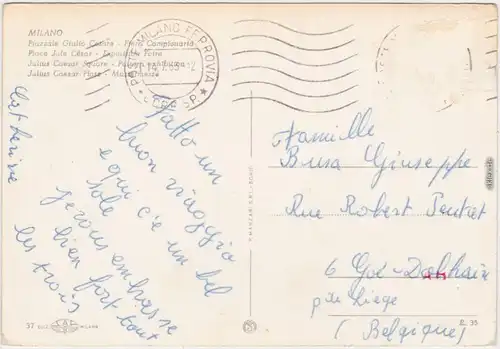 MILANO
Piazzale Giulio Cesare - Fiera Campionaria
Place Jule César - Exposition Foire
Julius Caesar Square
Julius Caesar Platz - Mustermesse
MILANO FERROVIA
Fatto un
buon viaggio
e qui c'è un bel
sole
je vous embrasse
bien fort tout
les trois
Catherine
Famille
Busa Giuseppe
Rue Robert Pentret
6 Goé-Dolhain
près Liège
(Belgique)
37
MILANO